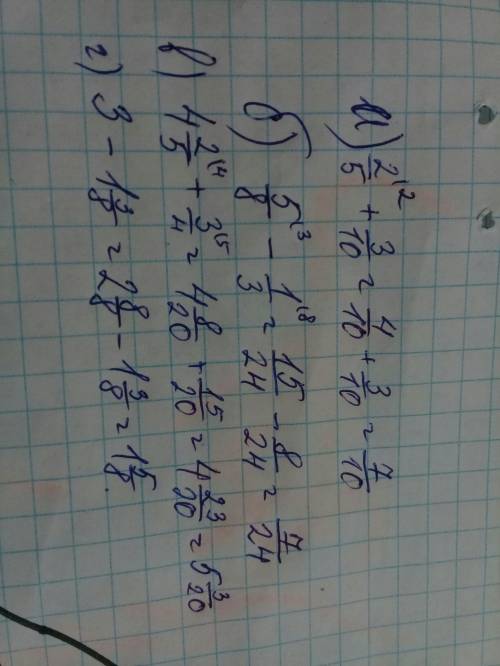 а) 2/5 ⁽² + 3/10 = 4/10 + 3/10 = 7/10
б) 5/8 ⁽³ − 1/3 ⁽⁸ = 15/24 − 8/24 = 7/24
в) 4 2/5 ⁽⁴ + 3/4 ⁽⁵ = 4 8/20 + 15/20 = 4 23/20 = 5 3/20
г) 3 − 1 3/8 = 2 8/8 − 1 3/8 = 1 5/8